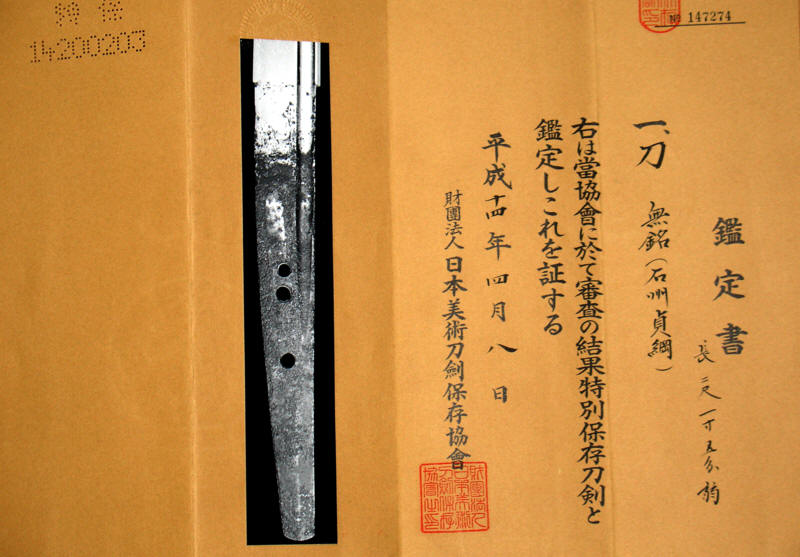 No 147274
鑑定書
一、刀 無銘(石州貞綱)
長 二尺一寸五分弱
右は當協會に於て審査の結果特別保存刀剣と
鑑定しこれを証する
平成十四年四月八日
財團法人 日本美術刀劍保存協會
特保
14200203